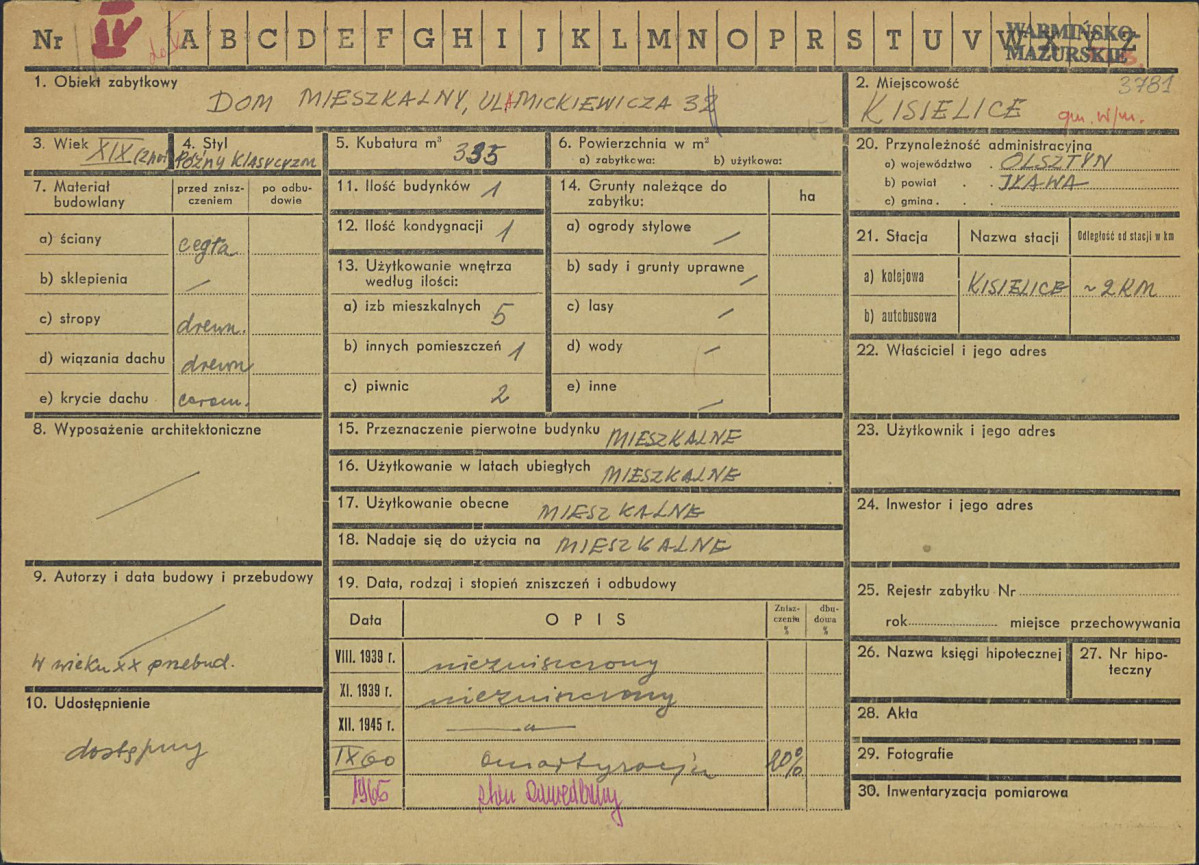 Nr IV A B C D E F G H I J K L M N O P R S T U V W X Y Z
WARMIŃSKO
MAZURSKIE
1. Obiekt zabytkowy
DOM MIESZKALNY, UL. MICKIEWICZA
2. Miejscowość 3781
KISIELICE gm. w/m.
3. Wiek XIX (2 poł.
4. Styl
PÓŹNY KLASYCYZM
5. Kubatura m³ 335
6. Powierzchnia w m²
a) zabytkowa: b) użytkowa:
7. Materiał budowlany
przed znisz-
czeniem
po odbu-
dowie
a) ściany cegła
b) sklepienia —
c) stropy drewn.
d) wiązania dachu drewn
e) krycie dachu ceram.
8. Wyposażenie architektoniczne
—
9. Autorzy i data budowy i przebudowy
—
W wieku XX przebud.
10. Udostępnienie
dostępny
11. Ilość budynków 1
12. Ilość kondygnacji 1
13. Użytkowanie wnętrza
według ilości:
a) izb mieszkalnych 5
b) innych pomieszczeń 1
c) piwnic 2
14. Grunty należące do
zabytku:
ha
a) ogrody stylowe —
b) sady i grunty uprawne —
c) lasy —
d) wody —
e) inne —
15. Przeznaczenie pierwotne budynku MIESZKALNE
16. Użytkowanie w latach ubiegłych MIESZKALNE
17. Użytkowanie obecne MIESZKALNE
18. Nadaje się do użycia na MIESZKALNE
19. Data, rodzaj i stopień zniszczeń i odbudowy
Data OPIS
Znisz-
czenia
%
dbu-
dowa
%
VIII. 1939 r. niezniszczony
XI. 1939 r. niezniszczony
XII. 1945 r. —„—
IX 60 amortyzacja 20%
1966 stan
20. Przynależność administracyjna
a) województwo . OLSZTYN
b) powiat . . IŁAWA
c) gmina . . .
21. Stacja Nazwa stacji Odległość od stacji w km
a) kolejowa KISIELICE ~ 2 KM
b) autobusowa
22. Właściciel i jego adres
23. Użytkownik i jego adres
24. Inwestor i jego adres
25. Rejestr zabytku Nr
rok miejsce przechowywania
26. Nazwa księgi hipotecznej
27. Nr hipo-
teczny
28. Akta
29. Fotografie
30. Inwentaryzacja pomiarowa